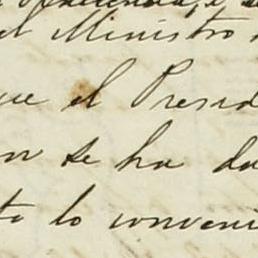 el Ministro
que el Presid
n se ha da
to lo conveni